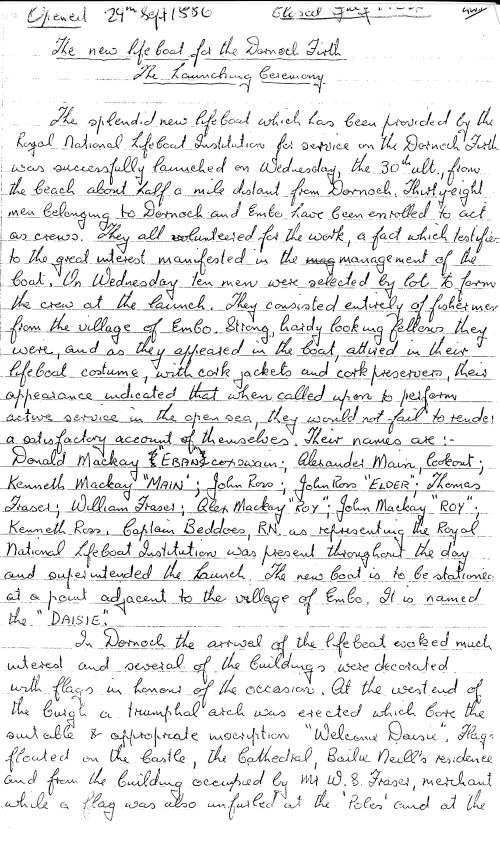 Opened 29th Sept 1886 Closed
The new lifeboat for the Dornoch Firth
The Launching Ceremony.
The splendid new lifeboat which has been provided by the
Royal National Lifeboat Institution for service on the Dornoch Firth
was successfully launched on Wednesday, the 30th ult., from
the beach about half a mile distant from Dornoch. Thirty eight
men belonging to Dornoch and Embo have been enrolled to act
as crews. They all volunteered for the work, a fact which testifies
to the great interest manifested in the management of the
boat. On Wednesday ten men were selected by lot to form
the crew at the launch. They consisted entirely of fishermen
from the village of Embo. Strong, hardy looking fellows they
were, and as they appeared in the boat, attired in their
lifeboat costume, with cork jackets and cork preservers, their
appearance indicated that when called upon to perform
active service in the open sea, they would not fail to render
a satisfactory account of themselves. Their names are :-
Donald Mackay "EBAN" coxswain; Alexander Main, lookout;
Kenneth Mackay "MAIN"; John Ross; John Ross "ELDER"; Thomas
Fraser; William Fraser; Alex Mackay "ROY"; John Mackay "ROY";
Kenneth Ross. Captain Beddoes, R.N. as representing the Royal
National Lifeboat Institution was present throughout the day
and superintended the launch. The new boat is to be stationed
at a point adjacent to the village of Embo. It is named
the "DAISIE".
In Dornoch the arrival of the lifeboat evoked much
interest and several of the buildings were decorated
with flags in honour of the occasion. At the west end of
the burgh a triumphal arch was erected which bore the
suitable & appropriate inscription "Welcome Daisie". Flags
floated on the Castle, the Cathedral, Bailie Neill's residence
and from the building occupied by Mr W. S. Fraser, merchant
while a flag was also unfurled at the 'Poles' and at the